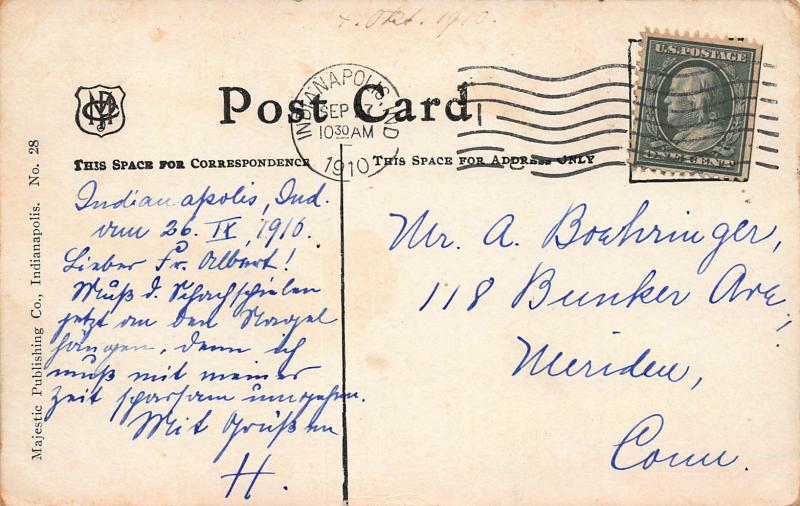 4. Okt. 1910.
Post Card
INDIANAPOLIS, IND.
SEP 27
1030 AM
1910
U.S. POSTAGE
ONE CENT
THIS SPACE FOR CORRESPONDENCE
THIS SPACE FOR ADDRESS ONLY
Majestic Publishing Co., Indianapolis. No. 28
Indianapolis, Ind.
am 26. IX, 1910.
Lieber Fr. Albert!
Muß d. Schachspielen
jetzt an den Nagel
hängen, denn ich
muß mit meiner
Zeit sparsam umgehen.
Mit Grüßen
H.
Mr. A. Boehringer,
118 Bunker Ave,
Meriden,
Conn.